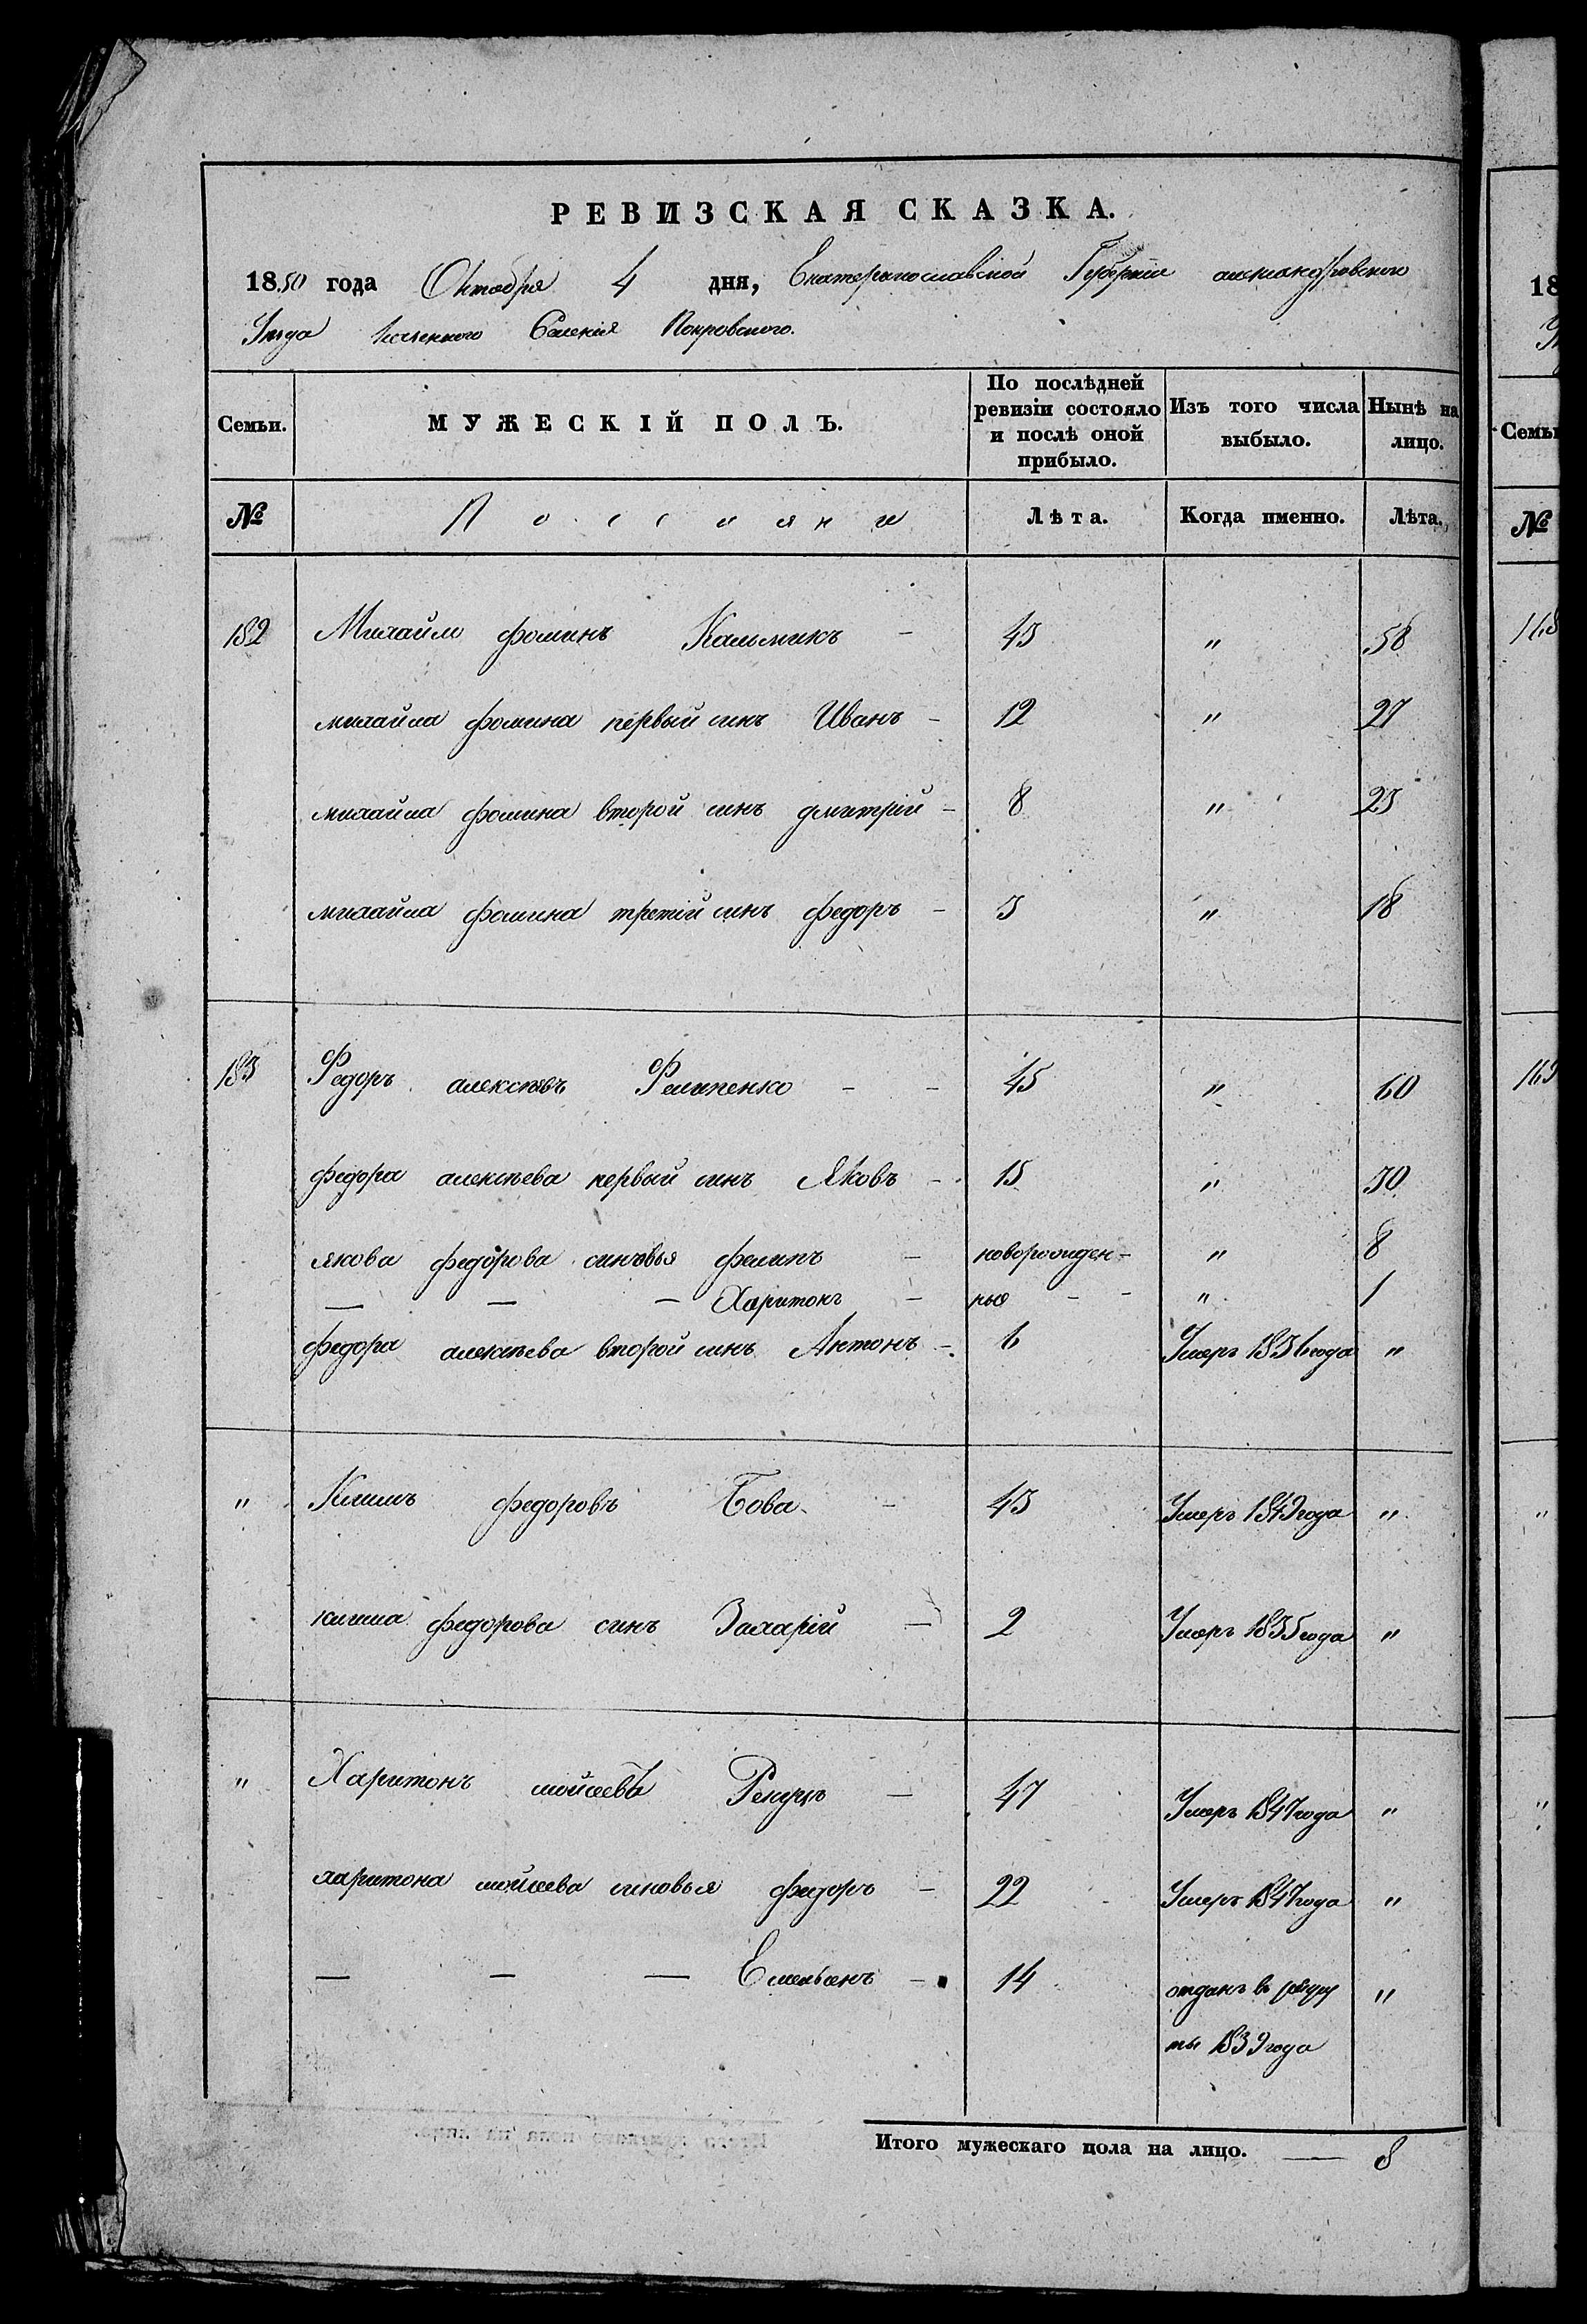 РЕВИЗСКАЯ СКАЗКА.
1850 года Октября 4 дня, Екатеринославской Губернии александровского
Уезда Казенного Селения Покровского.
Семьи. МУЖЕСКІЙ ПОЛЪ. По послѣдней ревизіи состояло и послѣ оной прибыло. Изъ того числа выбыло. Нынѣ на лицо.
№ Поселяне Лѣта. Когда именно. Лѣта.
182 Михайло фоминъ Кальмикъ - 43 " 58
михайла фомина первый синъ Иванъ - 12 " 27
михайла фомина второй синъ дмитрій - 8 " 23
михайла фомина третій синъ федоръ - 3 " 18
183 Федоръ алексѣевъ Филипенко - - 45 " 60
федора алексѣева первый синъ Яковъ - 15 " 30
якова федорова синовья филипъ - новорожден- " 8
— — — Харитонъ - ные - - " 1
федора алексѣева второй синъ Антонъ - 6 Умеръ 1836 года "
" Климъ федоровъ Бова - 43 Умеръ 1849 года "
клима федорова синъ Захарій — 2 Умеръ 1835 года "
" Харитонъ мойсеевъ - 47 Умеръ 1847 года "
харитона мойсеева синовья федоръ - 22 Умеръ 1847 года "
— — — Емельянъ - 14 отданъ въ рекру "
ты 1839 года
Итого мужескаго пола на лицо. — 8
18
Семьи
№
"
"